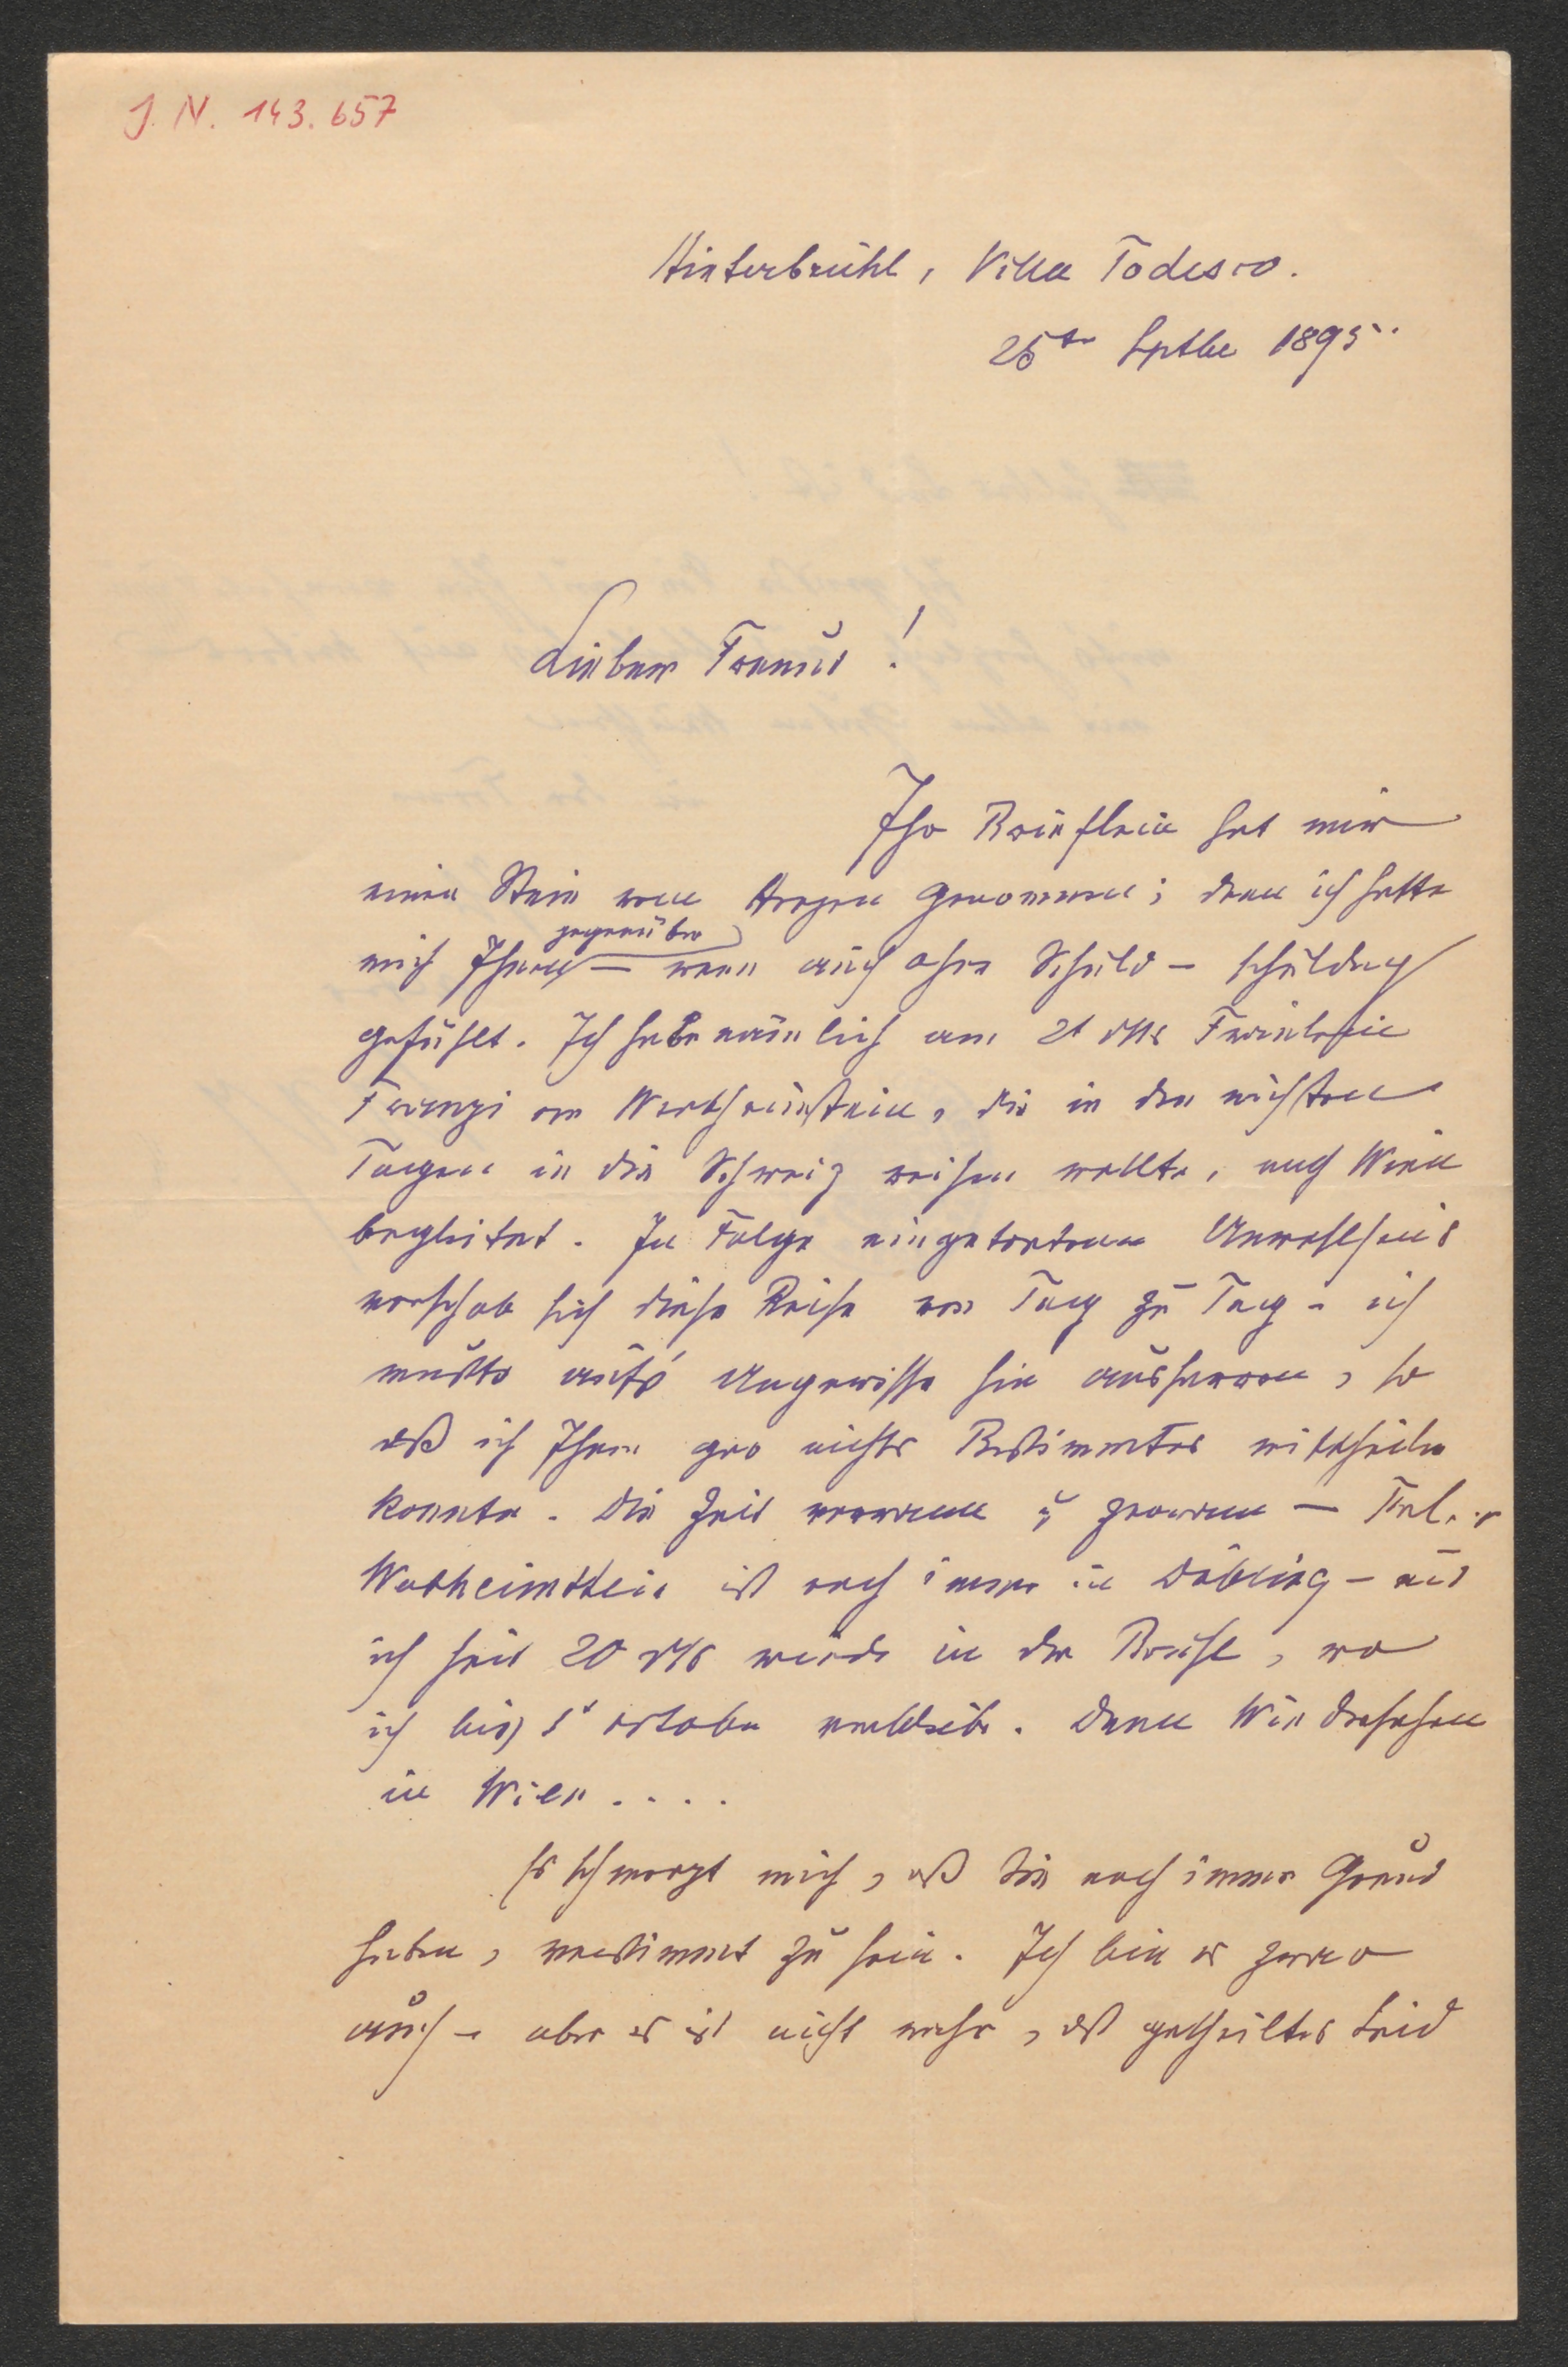 J. N. 143.657
Hinterbrühl, Villa Todesco.
25t Septbe 1895.
Lieber Freund!
Ihr Brieflein hat mir
einen Stein vom Herzen genommen; denn ich hatte
gegenüber
mich Ihnen – wenn auch ohne Schuld – schuldig
gefühlt. Ich habe nämlich am 21 dMs Fräulein
Franzi von Wertheimstein, die in den nächsten
Tagen in die Schweiz reisen wollte, nach Wien
begleitet. In Folge eingetretenen Unwohlseins
verschob sich diese Reise von Tag zu Tag – ich
mußte aufs Ungewisse hin ausharren, so
daß ich Ihnen gar nichts Bestimmtes mittheilen
konnte. Die Zeit verrann u zerrann – Frl. v
Wertheimstein ist noch immer in Döbling – und
ich seit 20 dMs wieder in der Brühl, wo
ich bis 1t october verbleibe. Dann Wiedersehen
in Wien....
Es schmerzt mich, daß Sie noch immer Grund
haben, verstimmt zu sein. Ich bin es zwar
auch – aber es ist nicht wahr, daß getheiltes Leid